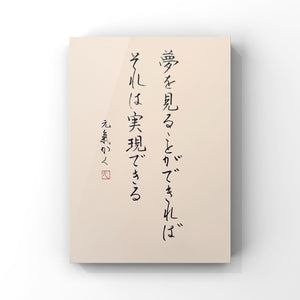 夢を見ることができれば
それは実現できる
元氣かく